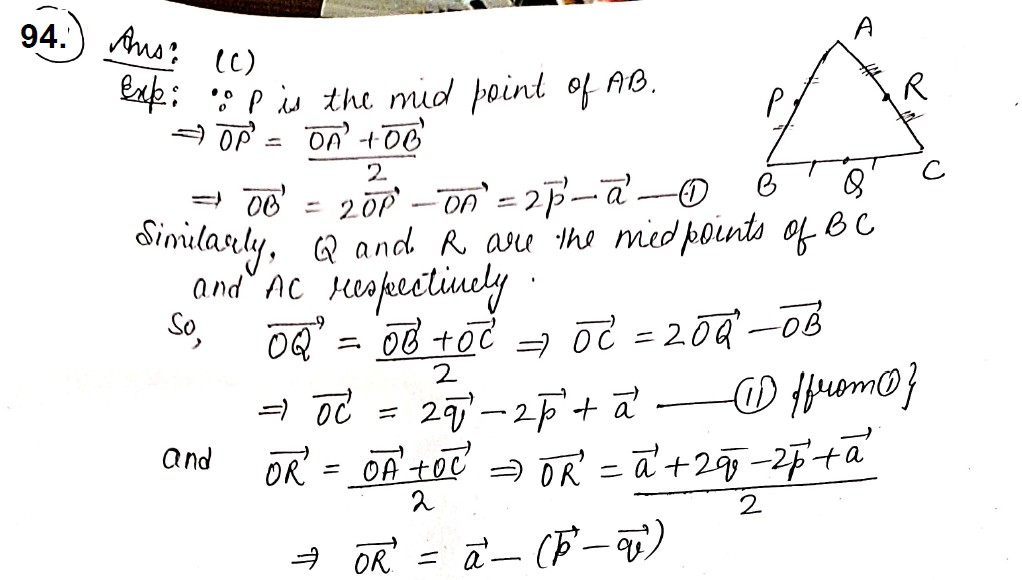 94. Ans: (C)
Exp: ∵ P is the mid point of AB.
⇒ OP⃗ = (OA⃗ + OB⃗)/2
⇒ OB⃗ = 2OP⃗ − OA⃗ = 2p⃗ − a⃗ —(I)
Similarly, Q and R are the midpoints of BC
and AC respectively.
So, OQ⃗ = (OB⃗ + OC⃗)/2 ⇒ OC⃗ = 2OQ⃗ − OB⃗
⇒ OC⃗ = 2q⃗ − 2p⃗ + a⃗ —(II) {from (I)}
and OR⃗ = (OA⃗ + OC⃗)/2 ⇒ OR⃗ = (a⃗ + 2q⃗ − 2p⃗ + a⃗)/2
⇒ OR⃗ = a⃗ − (p⃗ − q⃗)
A
P R
B Q C